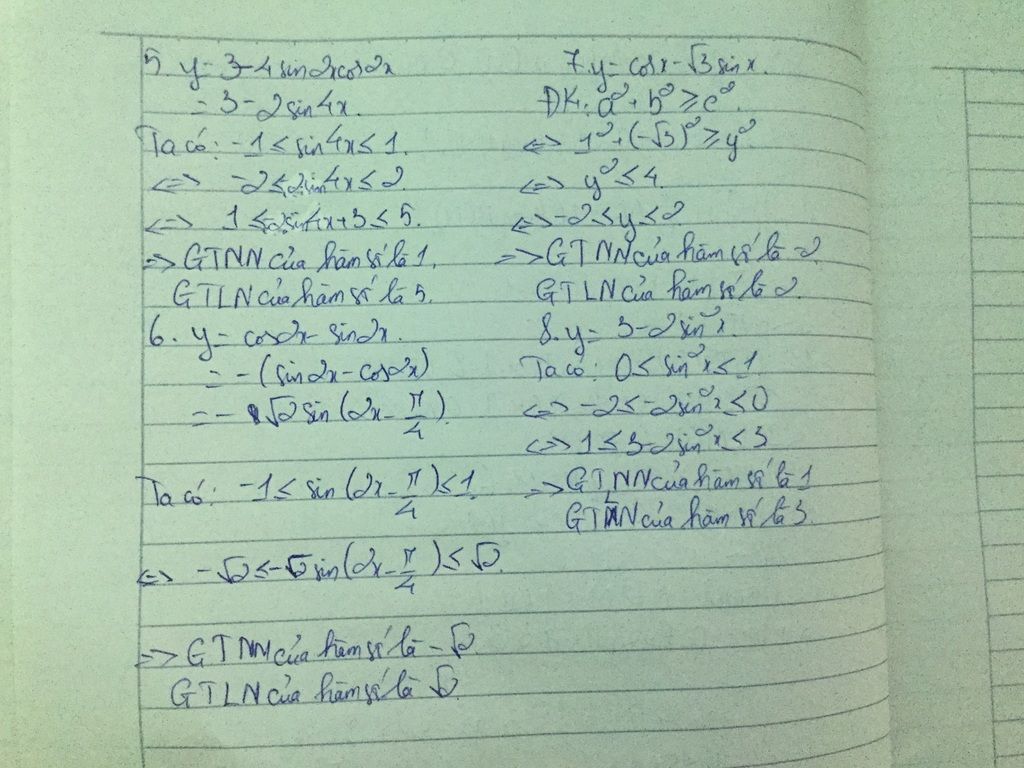 5. y = 3-4sin2xcos2x
= 3-2sin4x.
Ta có: -1 ≤ sin4x ≤ 1.
<=> -2 ≤ -2sin4x ≤ 2.
<=> 1 ≤ -2sin4x+3 ≤ 5.
=> GTNN của hàm số là 1.
GTLN của hàm số là 5.
6. y = cos2x - sin2x.
= -(sin2x-cos2x)
= -√2 sin(2x-π/4).
Ta có: -1 ≤ sin(2x-π/4) ≤ 1.
<=> -√2 ≤ -√2 sin(2x-π/4) ≤ √2.
=> GTNN của hàm số là -√2.
GTLN của hàm số là √2.
7. y = cosx - √3 sinx.
ĐK: a² + b² ≥ c².
<=> 1² + (-√3)² ≥ y²
<=> y² ≤ 4.
<=> -2 ≤ y ≤ 2
=> GTNN của hàm số là -2.
GTLN của hàm số là 2.
8. y = 3-2sin²x.
Ta có: 0 ≤ sin²x ≤ 1.
<=> -2 ≤ -2sin²x ≤ 0
<=> 1 ≤ 3-2sin²x ≤ 3
=> GTNN của hàm số là 1
GTLN của hàm số là 3.